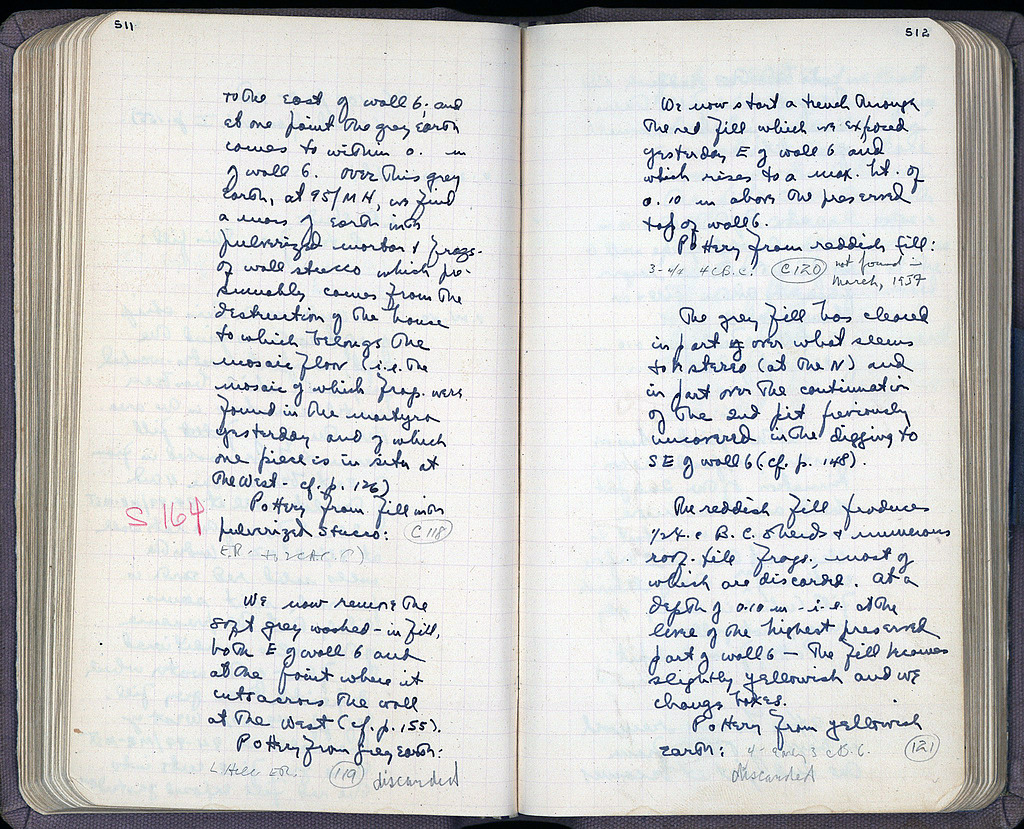 511
to the East of wall 6. and
at one point the grey earth
comes to within 0.   m
of wall 6. over this grey
Earth, at 95/MH, we find
a mass of earth with
pulverized mortar & frags.
of wall stucco which pre-
sumably comes from the
destruction of the house
to which belongs the
mosaic floor (i.e. the
mosaic of which frags. were
found in the martyra
yesterday and of which
one piece is in situ at
the West - cf. p. 126)
S 164
Pottery from fill with
pulverized stucco: C 118
E.R. to 2 C A.C. (?)
We now remove the
soft grey washed-in fill,
both E of wall 6 and
at the point where it
cuts across the wall
at the West (cf. p. 155).
Pottery from grey earth:
L Hell ER. 119 discarded
512
We now start a trench through
the red fill which we exposed
yesterday E of wall 6 and
which rises to a max. ht. of
0.10 m above the preserved
top of wall 6.
Pottery from reddish fill:
3-4/4 4 C B.C. C 120 not found in
March, 1957
The grey fill has cleared
in part over what seems
to be stereo (at the N) and
in part over the continuation
of the 2nd pit previously
uncovered in the digging to
SE of wall 6 (cf. p. 148).
The reddish fill produces
1/2 4. c B.C. sherds & numerous
roof-tile frags. most of
which are discarded. At a
depth of 0.10 m - i.e. at the
level of the highest preserved
part of wall 6 — the fill becomes
slightly yellowish and we
change boxes.
Pottery from yellowish
earth: 4 - early 3 c B.C. 121
discarded